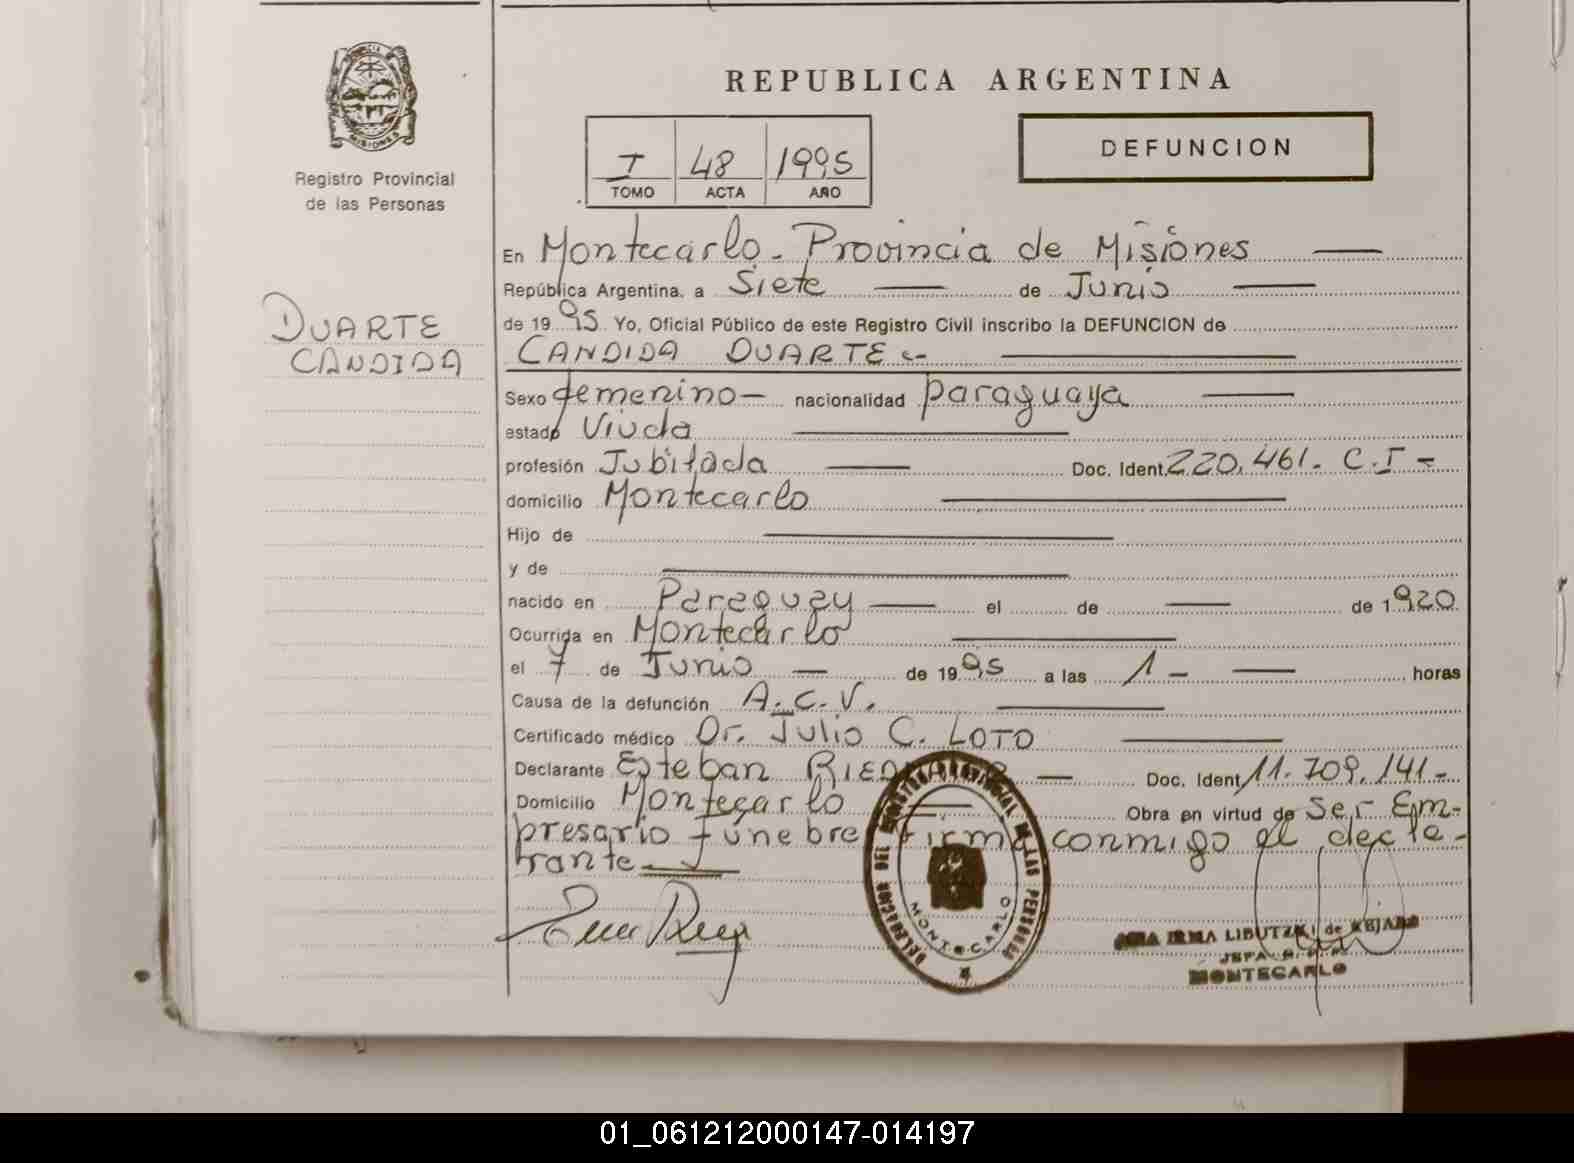 PROVINCIA DE
MISIONES
Registro Provincial
de las Personas
DUARTE
CANDIDA
REPUBLICA ARGENTINA
I 48 1995
TOMO ACTA AÑO
DEFUNCION
En Montecarlo - Provincia de Misiones
República Argentina, a Siete de Junio
de 1995 Yo, Oficial Público de este Registro Civil inscribo la DEFUNCION de
CANDIDA DUARTE
Sexo femenino - nacionalidad paraguaya
estado Viuda
profesión Jubilada Doc. Ident. 220.461. C.I -
domicilio Montecarlo
Hijo de
y de
nacido en Paraguay el de de 1920
Ocurrida en Montecarlo
el 7 de Junio de 1995 a las 1 - horas
Causa de la defunción A.C.V.
Certificado médico Dr. Julio C. LOTO
Declarante Esteban Doc. Ident. 11.709.141-
Domicilio Montecarlo Obra en virtud de Ser Em-
presario fúnebre firma conmigo el decla-
rante
DELEGACION DEL REGISTRO PROVINCIAL DE LAS PERSONAS
MONTECARLO
IRMA LIBUTZKI de
MONTECARLO
01_061212000147-014197